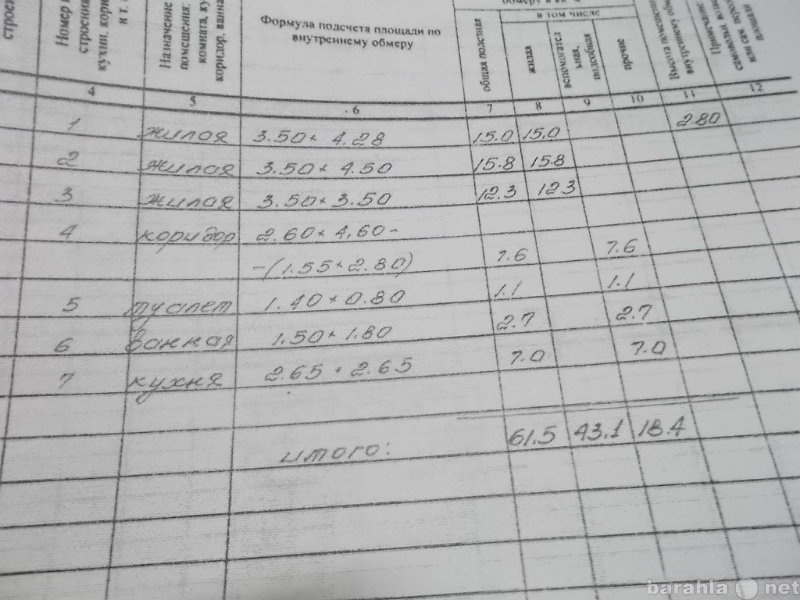 строен
Номер
строения
кухни, кори
и т.
Назначение
помещения:
комната, ку
коридор, ванна
Формула подсчета площади по
внутреннему обмеру
обмеру в кв.
в том числе
общая полезная
жилая
вспомогател
ьная,
подсобная
прочие
Высота помещений
внутреннему обме
площади
4 5 6 7 8 9 10 11 12
1 жилая 3.50 × 4.28 15.0 15.0 2.80
2 жилая 3.50 × 4.50 15.8 15.8
3 жилая 3.50 × 3.50 12.3 12.3
4 коридор 2.60 × 4.60 -
-(1.55 × 2.80) 7.6 7.6
5 туалет 1.40 × 0.80 1.1 1.1
6 ванная 1.50 × 1.80 2.7 2.7
7 кухня 2.65 × 2.65 7.0 7.0
итого: 61.5 43.1 18.4
barahla net